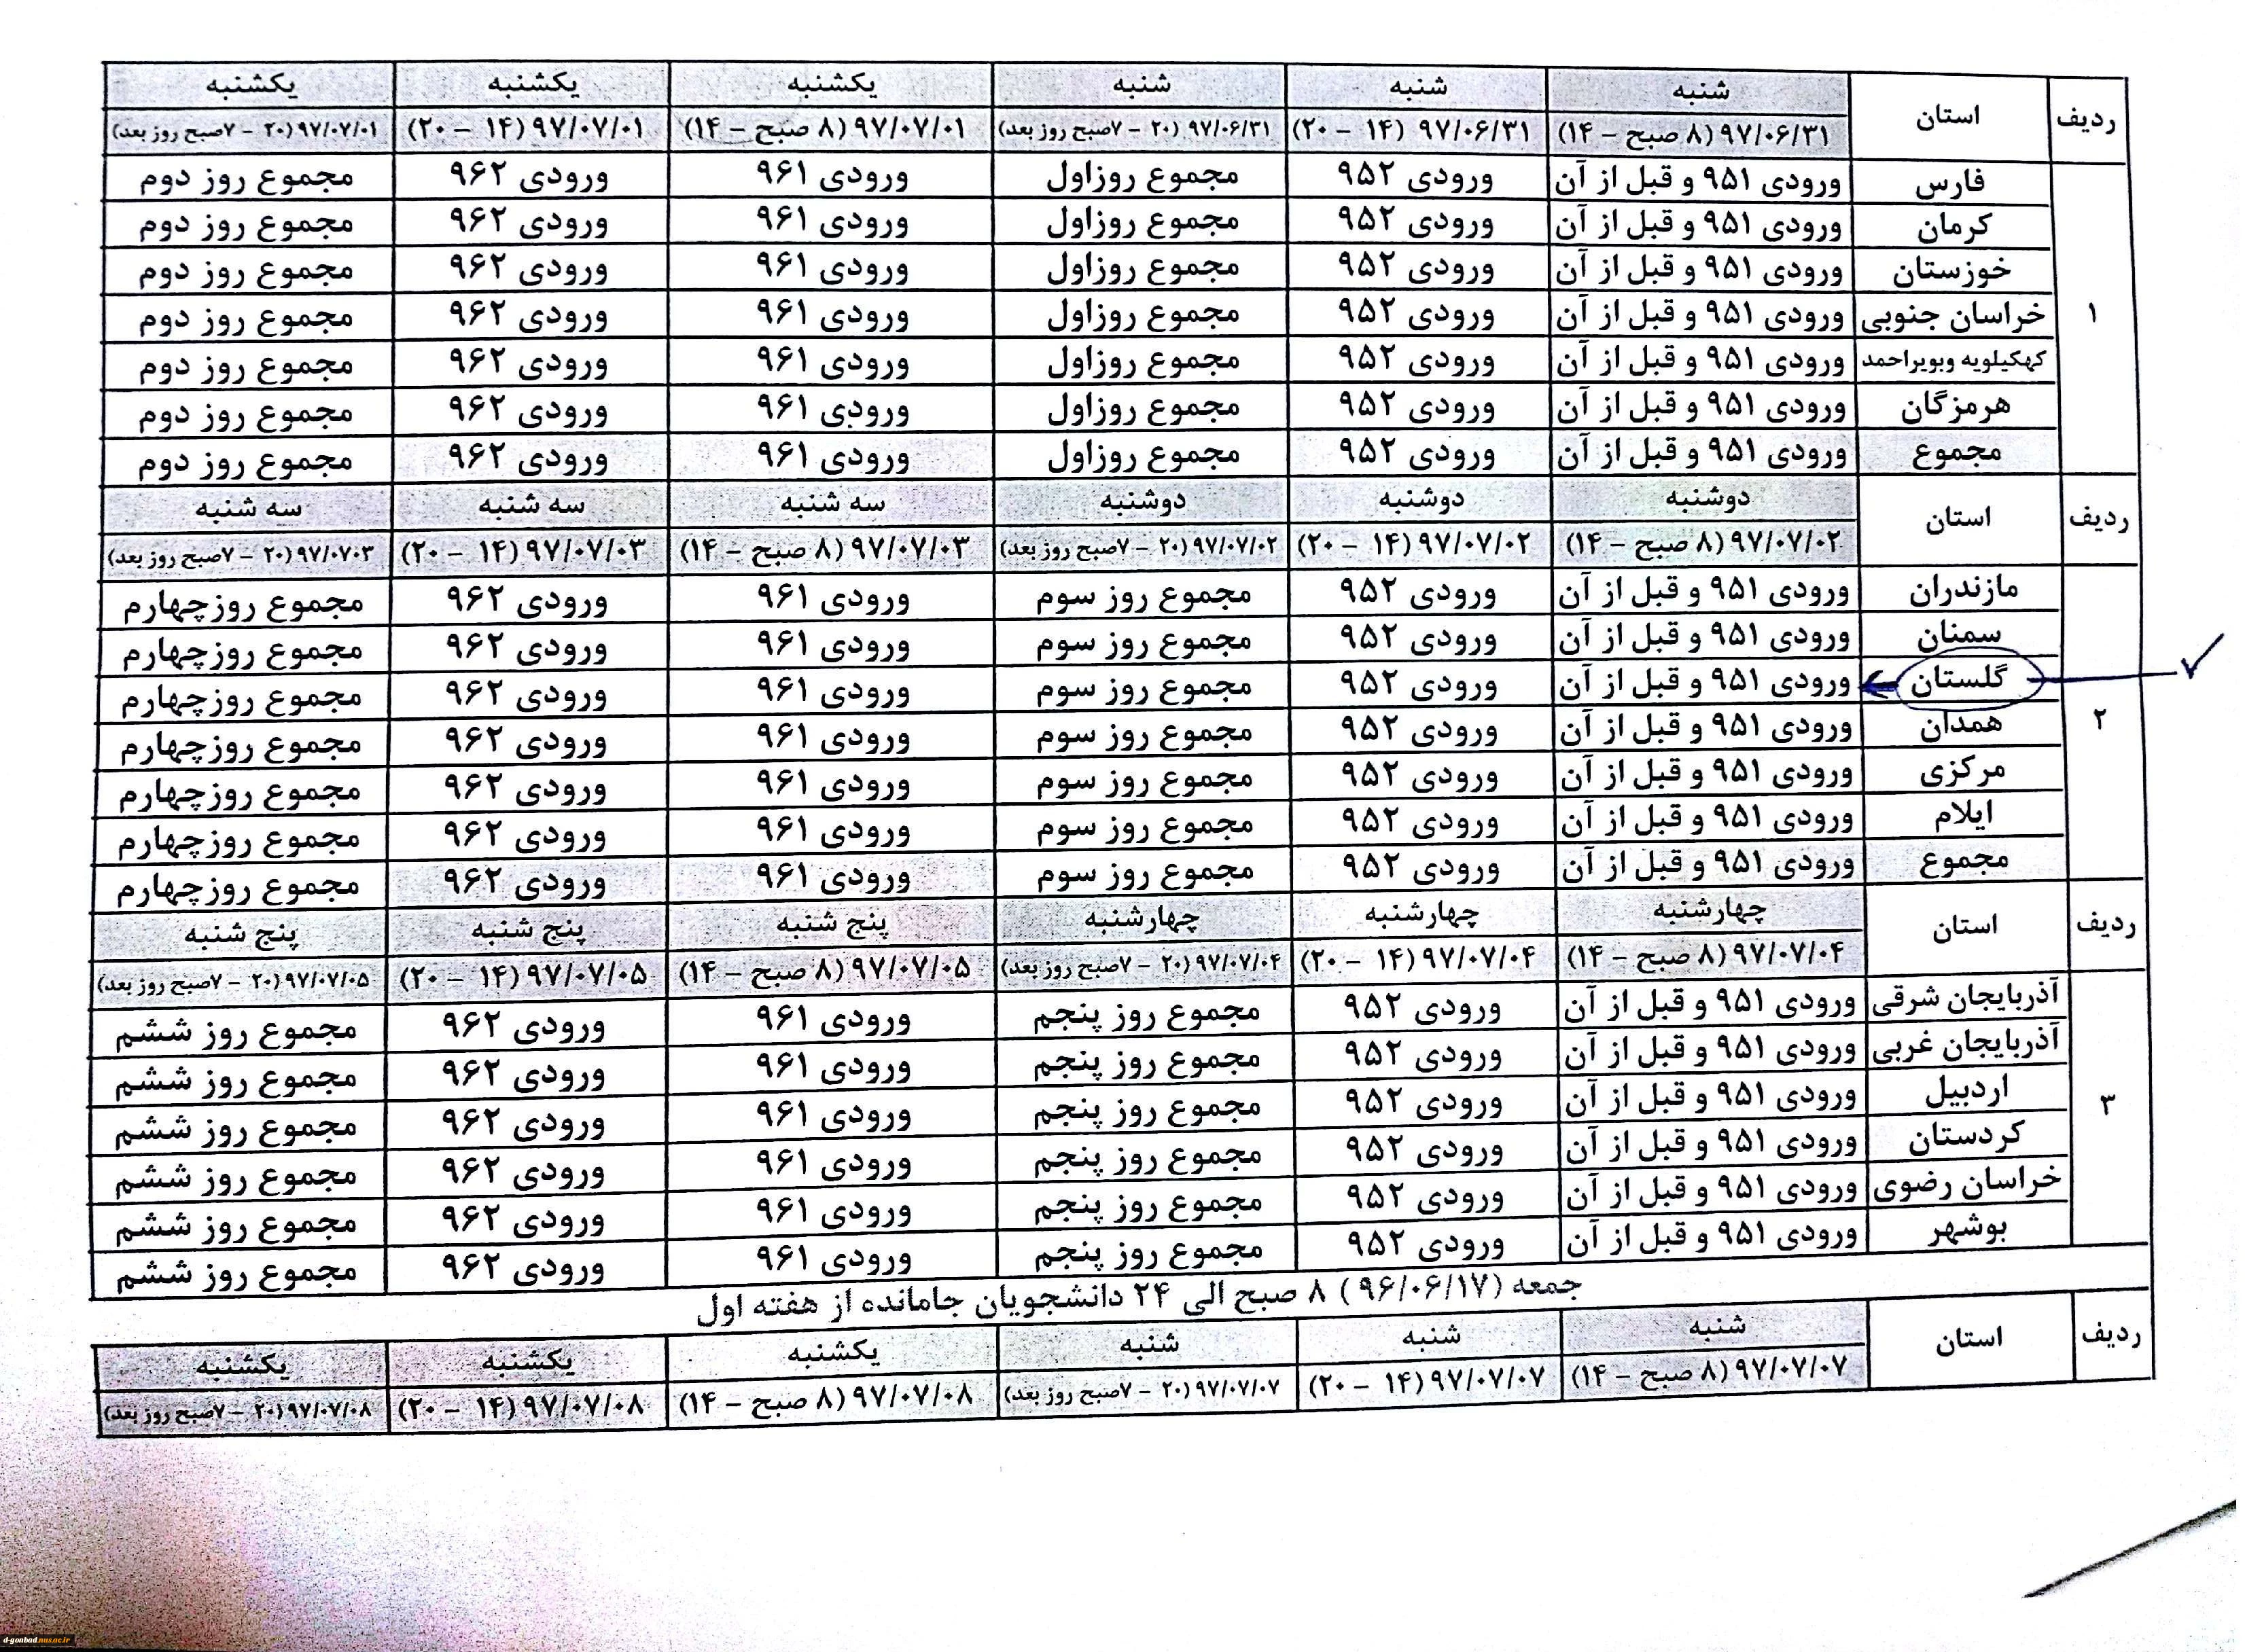 ردیف استان شنبه شنبه شنبه یکشنبه یکشنبه یکشنبه
۹۷/۰۶/۳۱ (۸ صبح – ۱۴) ۹۷/۰۶/۳۱ (۱۴ – ۲۰) ۹۷/۰۶/۳۱ (۲۰ – ۷صبح روز بعد) ۹۷/۰۷/۰۱ (۸ صبح – ۱۴) ۹۷/۰۷/۰۱ (۱۴ – ۲۰) ۹۷/۰۷/۰۱ (۲۰ – ۷صبح روز بعد)
فارس ورودی ۹۵۱ و قبل از آن ورودی ۹۵۲ مجموع روزاول ورودی ۹۶۱ ورودی ۹۶۲ مجموع روز دوم
کرمان ورودی ۹۵۱ و قبل از آن ورودی ۹۵۲ مجموع روزاول ورودی ۹۶۱ ورودی ۹۶۲ مجموع روز دوم
خوزستان ورودی ۹۵۱ و قبل از آن ورودی ۹۵۲ مجموع روزاول ورودی ۹۶۱ ورودی ۹۶۲ مجموع روز دوم
۱ خراسان جنوبی ورودی ۹۵۱ و قبل از آن ورودی ۹۵۲ مجموع روزاول ورودی ۹۶۱ ورودی ۹۶۲ مجموع روز دوم
کهکیلویه وبویراحمد ورودی ۹۵۱ و قبل از آن ورودی ۹۵۲ مجموع روزاول ورودی ۹۶۱ ورودی ۹۶۲ مجموع روز دوم
هرمزگان ورودی ۹۵۱ و قبل از آن ورودی ۹۵۲ مجموع روزاول ورودی ۹۶۱ ورودی ۹۶۲ مجموع روز دوم
مجموع ورودی ۹۵۱ و قبل از آن ورودی ۹۵۲ مجموع روزاول ورودی ۹۶۱ ورودی ۹۶۲ مجموع روز دوم
ردیف استان دوشنبه دوشنبه دوشنبه سه شنبه سه شنبه سه شنبه
۹۷/۰۷/۰۲ (۸ صبح – ۱۴) ۹۷/۰۷/۰۲ (۱۴ – ۲۰) ۹۷/۰۷/۰۲ (۲۰ – ۷صبح روز بعد) ۹۷/۰۷/۰۳ (۸ صبح – ۱۴) ۹۷/۰۷/۰۳ (۱۴ – ۲۰) ۹۷/۰۷۰۳ (۲۰ – ۷صبح روز بعد)
مازندران ورودی ۹۵۱ و قبل از آن ورودی ۹۵۲ مجموع روز سوم ورودی ۹۶۱ ورودی ۹۶۲ مجموع روزچهارم
سمنان ورودی ۹۵۱ و قبل از آن ورودی ۹۵۲ مجموع روز سوم ورودی ۹۶۱ ورودی ۹۶۲ مجموع روزچهارم
گلستان ورودی ۹۵۱ و قبل از آن ورودی ۹۵۲ مجموع روز سوم ورودی ۹۶۱ ورودی ۹۶۲ مجموع روزچهارم
۲ همدان ورودی ۹۵۱ و قبل از آن ورودی ۹۵۲ مجموع روز سوم ورودی ۹۶۱ ورودی ۹۶۲ مجموع روزچهارم
مرکزی ورودی ۹۵۱ و قبل از آن ورودی ۹۵۲ مجموع روز سوم ورودی ۹۶۱ ورودی ۹۶۲ مجموع روزچهارم
ایلام ورودی ۹۵۱ و قبل از آن ورودی ۹۵۲ مجموع روز سوم ورودی ۹۶۱ ورودی ۹۶۲ مجموع روزچهارم
مجموع ورودی ۹۵۱ و قبل از آن ورودی ۹۵۲ مجموع روز سوم ورودی ۹۶۱ ورودی ۹۶۲ مجموع روزچهارم
ردیف استان چهارشنبه چهارشنبه چهارشنبه پنج شنبه پنج شنبه پنج شنبه
۹۷/۰۷/۰۴ (۸ صبح – ۱۴) ۹۷/۰۷/۰۴ (۱۴ – ۲۰) ۹۷/۰۷/۰۴ (۲۰ – ۷صبح روز بعد) ۹۷/۰۷/۰۵ (۸ صبح – ۱۴) ۹۷/۰۷/۰۵ (۱۴ – ۲۰) ۹۷/۰۷/۰۵ (۲۰ – ۷صبح روز بعد)
آذربایجان شرقی ورودی ۹۵۱ و قبل از آن ورودی ۹۵۲ مجموع روز پنجم ورودی ۹۶۱ ورودی ۹۶۲ مجموع روز ششم
آذربایجان غربی ورودی ۹۵۱ و قبل از آن ورودی ۹۵۲ مجموع روز پنجم ورودی ۹۶۱ ورودی ۹۶۲ مجموع روز ششم
۳ اردبیل ورودی ۹۵۱ و قبل از آن ورودی ۹۵۲ مجموع روز پنجم ورودی ۹۶۱ ورودی ۹۶۲ مجموع روز ششم
کردستان ورودی ۹۵۱ و قبل از آن ورودی ۹۵۲ مجموع روز پنجم ورودی ۹۶۱ ورودی ۹۶۲ مجموع روز ششم
خراسان رضوی ورودی ۹۵۱ و قبل از آن ورودی ۹۵۲ مجموع روز پنجم ورودی ۹۶۱ ورودی ۹۶۲ مجموع روز ششم
بوشهر ورودی ۹۵۱ و قبل از آن ورودی ۹۵۲ مجموع روز پنجم ورودی ۹۶۱ ورودی ۹۶۲ مجموع روز ششم
جمعه (۹۶/۰۶/۱۷) ۸ صبح الی ۲۴ دانشجویان جامانده از هفته اول
ردیف استان شنبه شنبه شنبه یکشنبه یکشنبه یکشنبه
۹۷/۰۷/۰۷ (۸ صبح – ۱۴) ۹۷/۰۷/۰۷ (۱۴ – ۲۰) ۹۷/۰۷/۰۷ (۲۰ – ۷صبح روز بعد) ۹۷/۰۷/۰۸ (۸ صبح – ۱۴) ۹۷/۰۷/۰۸ (۱۴ – ۲۰) ۹۷/۰۷/۰۸ (۲۰ – ۷صبح روز بعد)
d-gonbad.nus.ac.ir